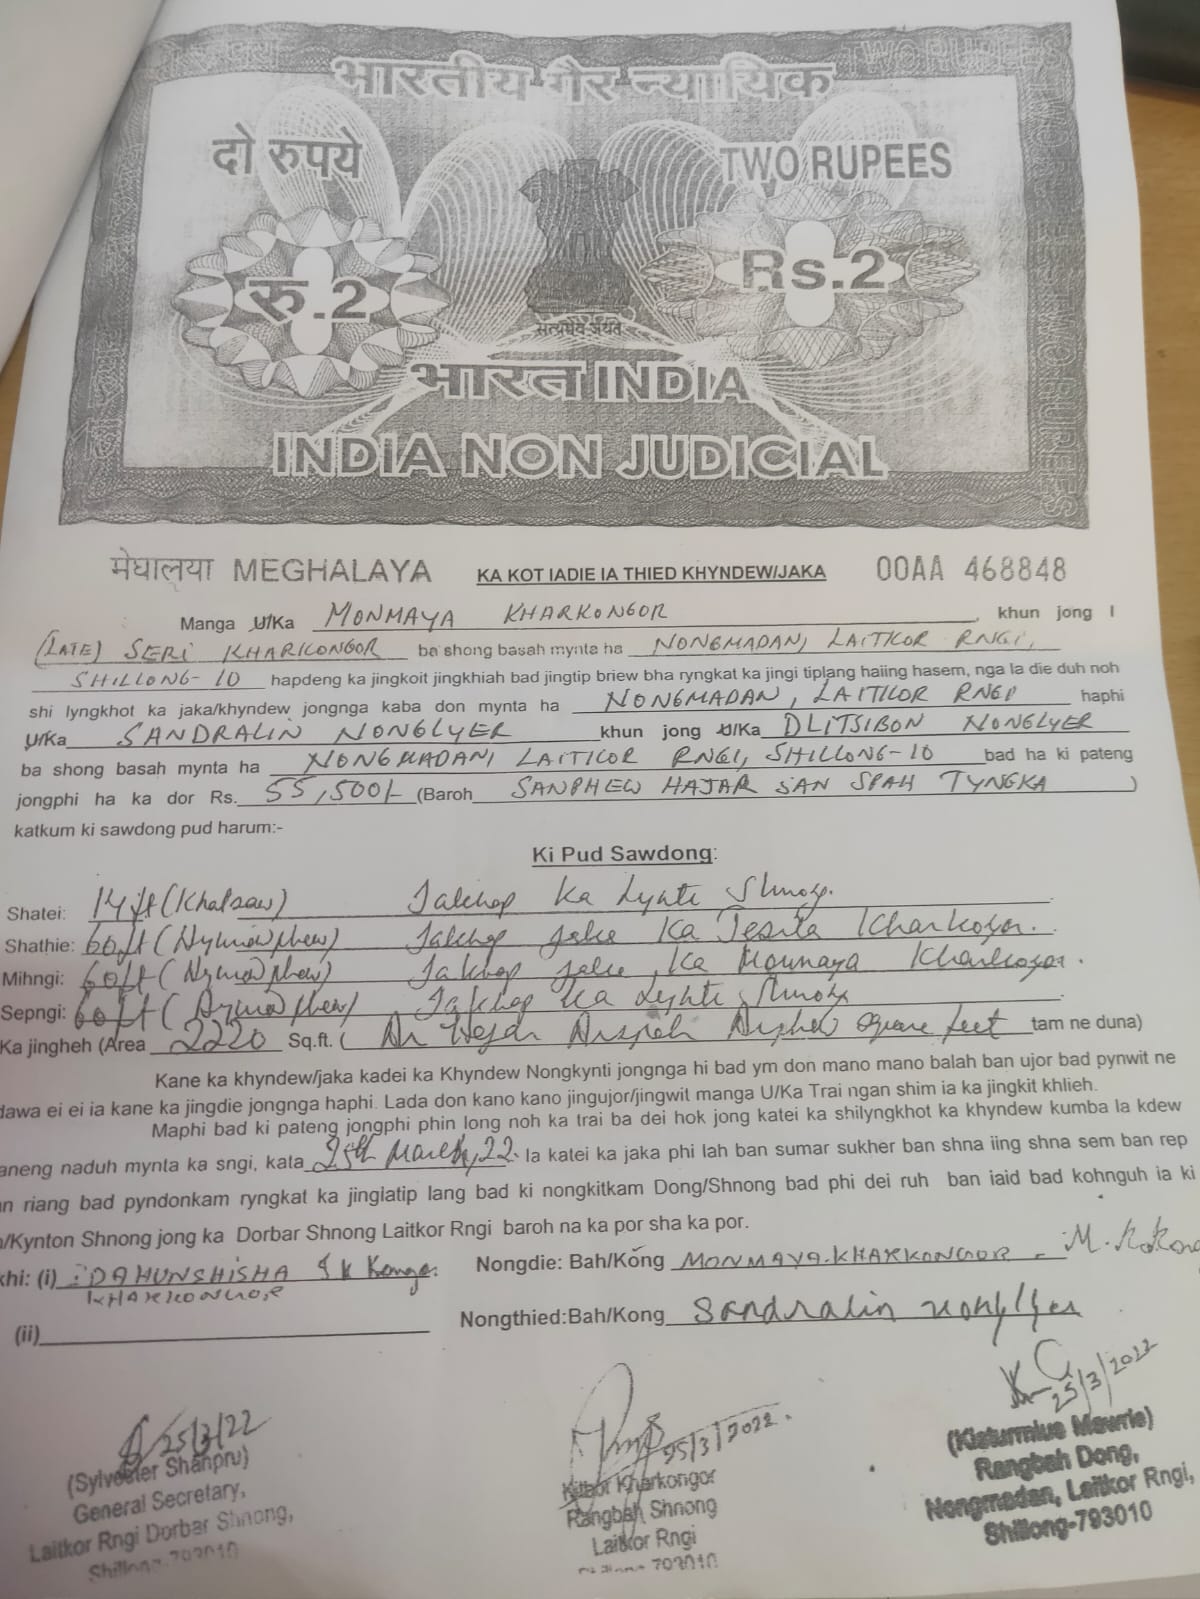 भारतीय गैर न्यायिक
दो रुपये TWO RUPEES
रु.2 Rs.2
सत्यमेव जयते
भारत INDIA
INDIA NON JUDICIAL
मेघालया MEGHALAYA KA KOT IADIE IA THIED KHYNDEW/JAKA 00AA 468848
Manga U/Ka MONMAYA KHARKONGOR khun jong I
(LATE) SERI KHARKONGOR ba shong basah mynta ha NONGMADAN, LAITKOR RNGI,
SHILLONG-10 hapdeng ka jingkoit jingkhiah bad jingtip briew bha ryngkat ka jingi tiplang haiing hasem, nga la die duh noh
shi lyngkhot ka jaka/khyndew jongnga kaba don mynta ha NONGMADAN, LAITKOR RNGI haphi
U/Ka SANDRALIN NONGLYER khun jong U/Ka DLITSIBON NONGLYER
ba shong basah mynta ha NONGMADAN, LAITKOR RNGI, SHILLONG-10 bad ha ki pateng
jongphi ha ka dor Rs. 55,500/- (Baroh SANPHEW HAJAR SAN SPAH TYNGKA )
katkum ki sawdong pud harum:-
Ki Pud Sawdong:
Shatei: 14ft (Khatsaw) Jakhap ka Lynti Shnong.
Shathie: 60ft (Hynriewphew) Jakhap jaka Ka Tesila Kharkongor.
Mihngi: 60ft (Hynriewphew) Jakhap jaka Ka Monmaya Kharkongor.
Sepngi: 60ft (Hynriewphew) Jakhap ka Lynti Shnong
Ka jingheh (Area 2220 Sq.ft. ( Ar Hajar Arspah Arphew square feet tam ne duna)
Kane ka khyndew/jaka kadei ka Khyndew Nongkynti jongnga hi bad ym don mano mano balah ban ujor bad pynwit ne
dawa ei ei ia kane ka jingdie jongnga haphi. Lada don kano kano jingujor/jingwit manga U/Ka Trai ngan shim ia ka jingkit khlieh.
Maphi bad ki pateng jongphi phin long noh ka trai ba dei hok jong katei ka shilyngkhot ka khyndew kumba la kdew
aneng naduh mynta ka sngi, kata 25th March, 22. Ia katei ka jaka phi lah ban sumar sukher ban shna iing shna sem ban rep
n riang bad pyndonkam ryngkat ka jinglatip lang bad ki nongkitkam Dong/Shnong bad phi dei ruh ban iaid bad kohnguh ia ki
/Kynton Shnong jong ka Dorbar Shnong Laitkor Rngi baroh na ka por sha ka por.
khi: (i) IDAHUNSHISHA KHARKONGOR Nongdie: Bah/Kong MONMAYA KHARKONGOR
(ii) Nongthied:Bah/Kong Sandralin Nonglyer
25/3/22 25/3/2022. 25/3/2022
(Sylvester Shanpru)
General Secretary,
Laitkor Rngi Dorbar Shnong,
Shillong-793010
Kharkongor
Rangbah Shnong
Laitkor Rngi
Shillong-793010
Rangbah Dong,
Nongmadan, Laitkor Rngi,
Shillong-793010